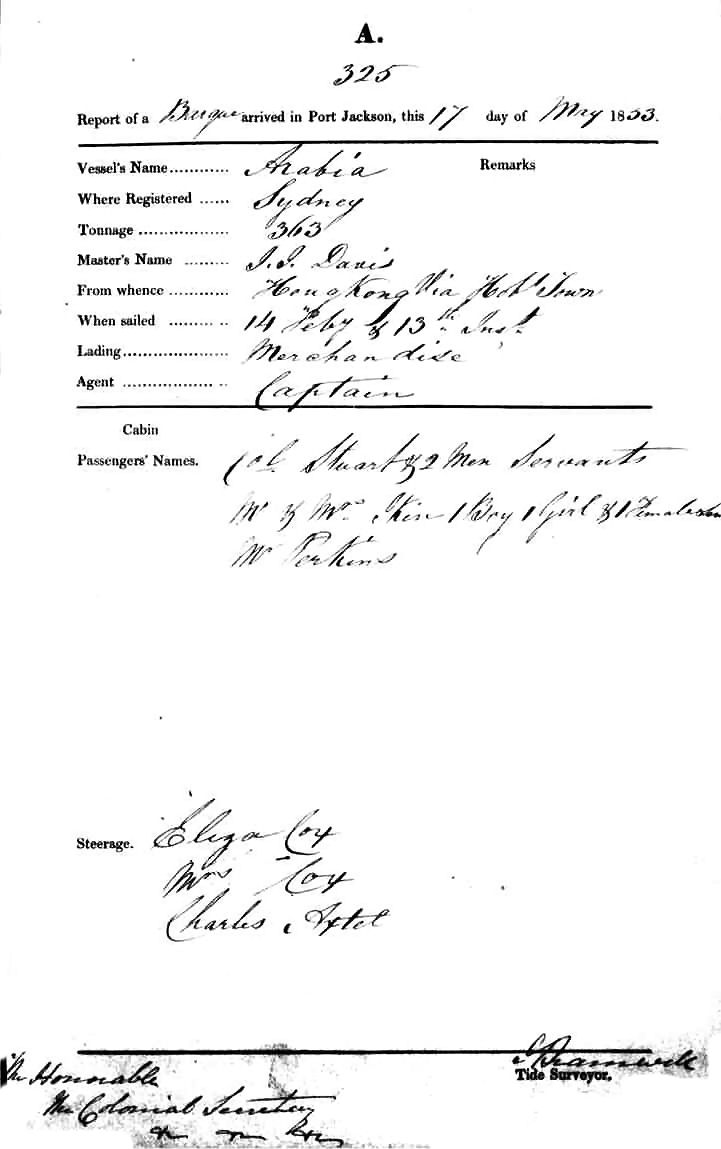 A.
325
Report of a Barque arrived in Port Jackson, this 17 day of May 1853.
Vessel's Name............ Arabia Remarks
Where Registered ...... Sydney
Tonnage .................. 363
Master's Name ......... J. J. Davis
From whence ............ Hong Kong Via Hobt Town
When sailed ......... .. 14 Feby & 13th Inst.
Lading..................... Merchandise
Agent .................. .. Captain
Cabin
Passengers' Names. Col. Stuart & 2 Men Servants
Mr & Mrs Skin 1 Boy 1 Girl & 1 Female
Mr Perkins
Steerage. Eliza Cox
Mrs Cox
Charles Axtel
Bramwell
Tide Surveyor.
The Honorable
The Colonial Secretary